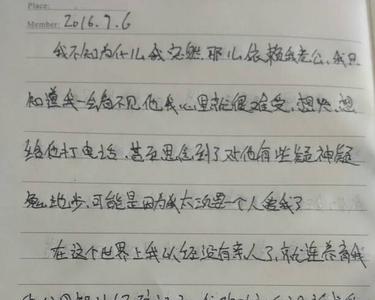 Place:
Member: 2016.7.6
我不知为什么我突然那么依赖我老公,我只
知道我一会看不见他我心里就很难受,想哭,想
给他打电话,甚至思念到了对他有些疑神疑
鬼地步,可能是因为我太没一个人爱我了
在这个世界上我以经没有亲人了,就连养育我